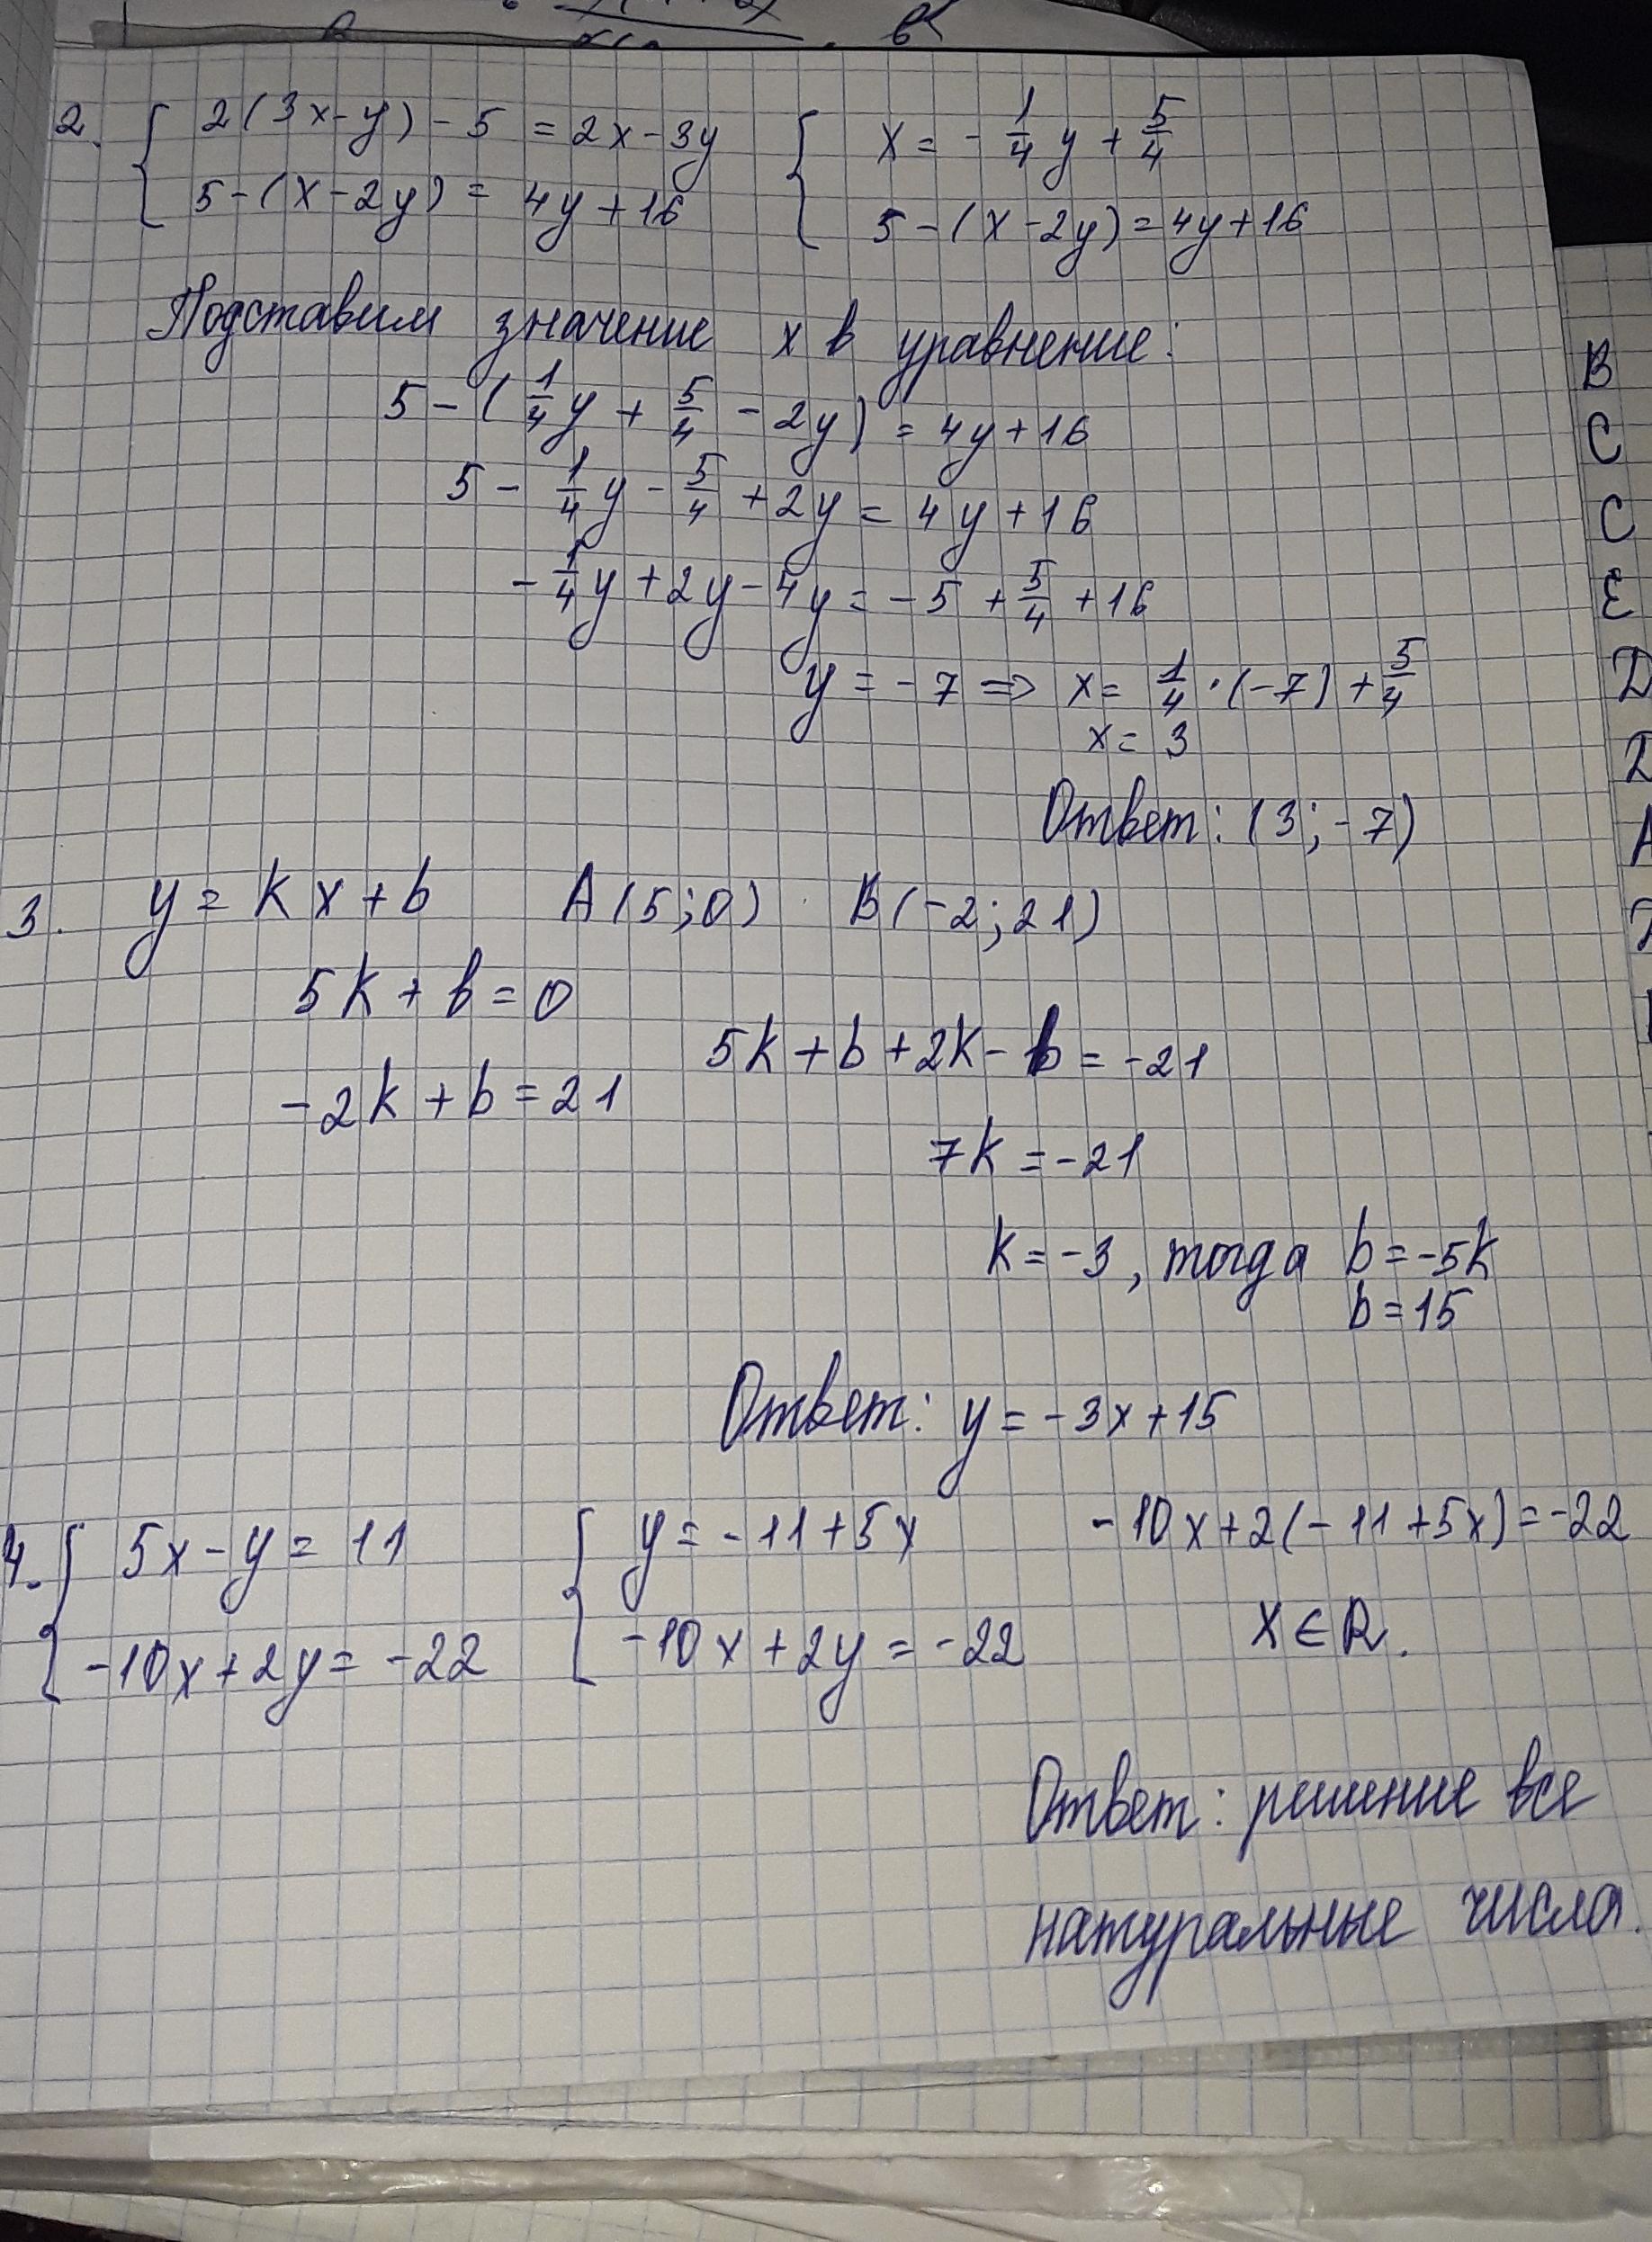 2. { 2(3x-y) - 5 = 2x - 3y { x = - 1/4 y + 5/4
5 - (x - 2y) = 4y + 16 5 - (x - 2y) = 4y + 16
Подставим значение x в уравнение:
5 - (1/4 y + 5/4 - 2y) = 4y + 16
5 - 1/4 y - 5/4 + 2y = 4y + 16
- 1/4 y + 2y - 4y = - 5 + 5/4 + 16
y = - 7 => x = 1/4 · (-7) + 5/4
x = 3
Ответ: (3; -7)
3. y = kx + b A(5; 0) B(-2; 21)
5k + b = 0
5k + b + 2k - b = -21
-2k + b = 21
7k = -21
k = -3, тогда b = -5k
b = 15
Ответ: y = -3x + 15
4. { 5x - y = 11 { y = -11 + 5x -10x + 2(-11 + 5x) = -22
-10x + 2y = -22 -10x + 2y = -22 x ∈ R.
Ответ: решение все
натуральные числа.
B
C
C
E
D